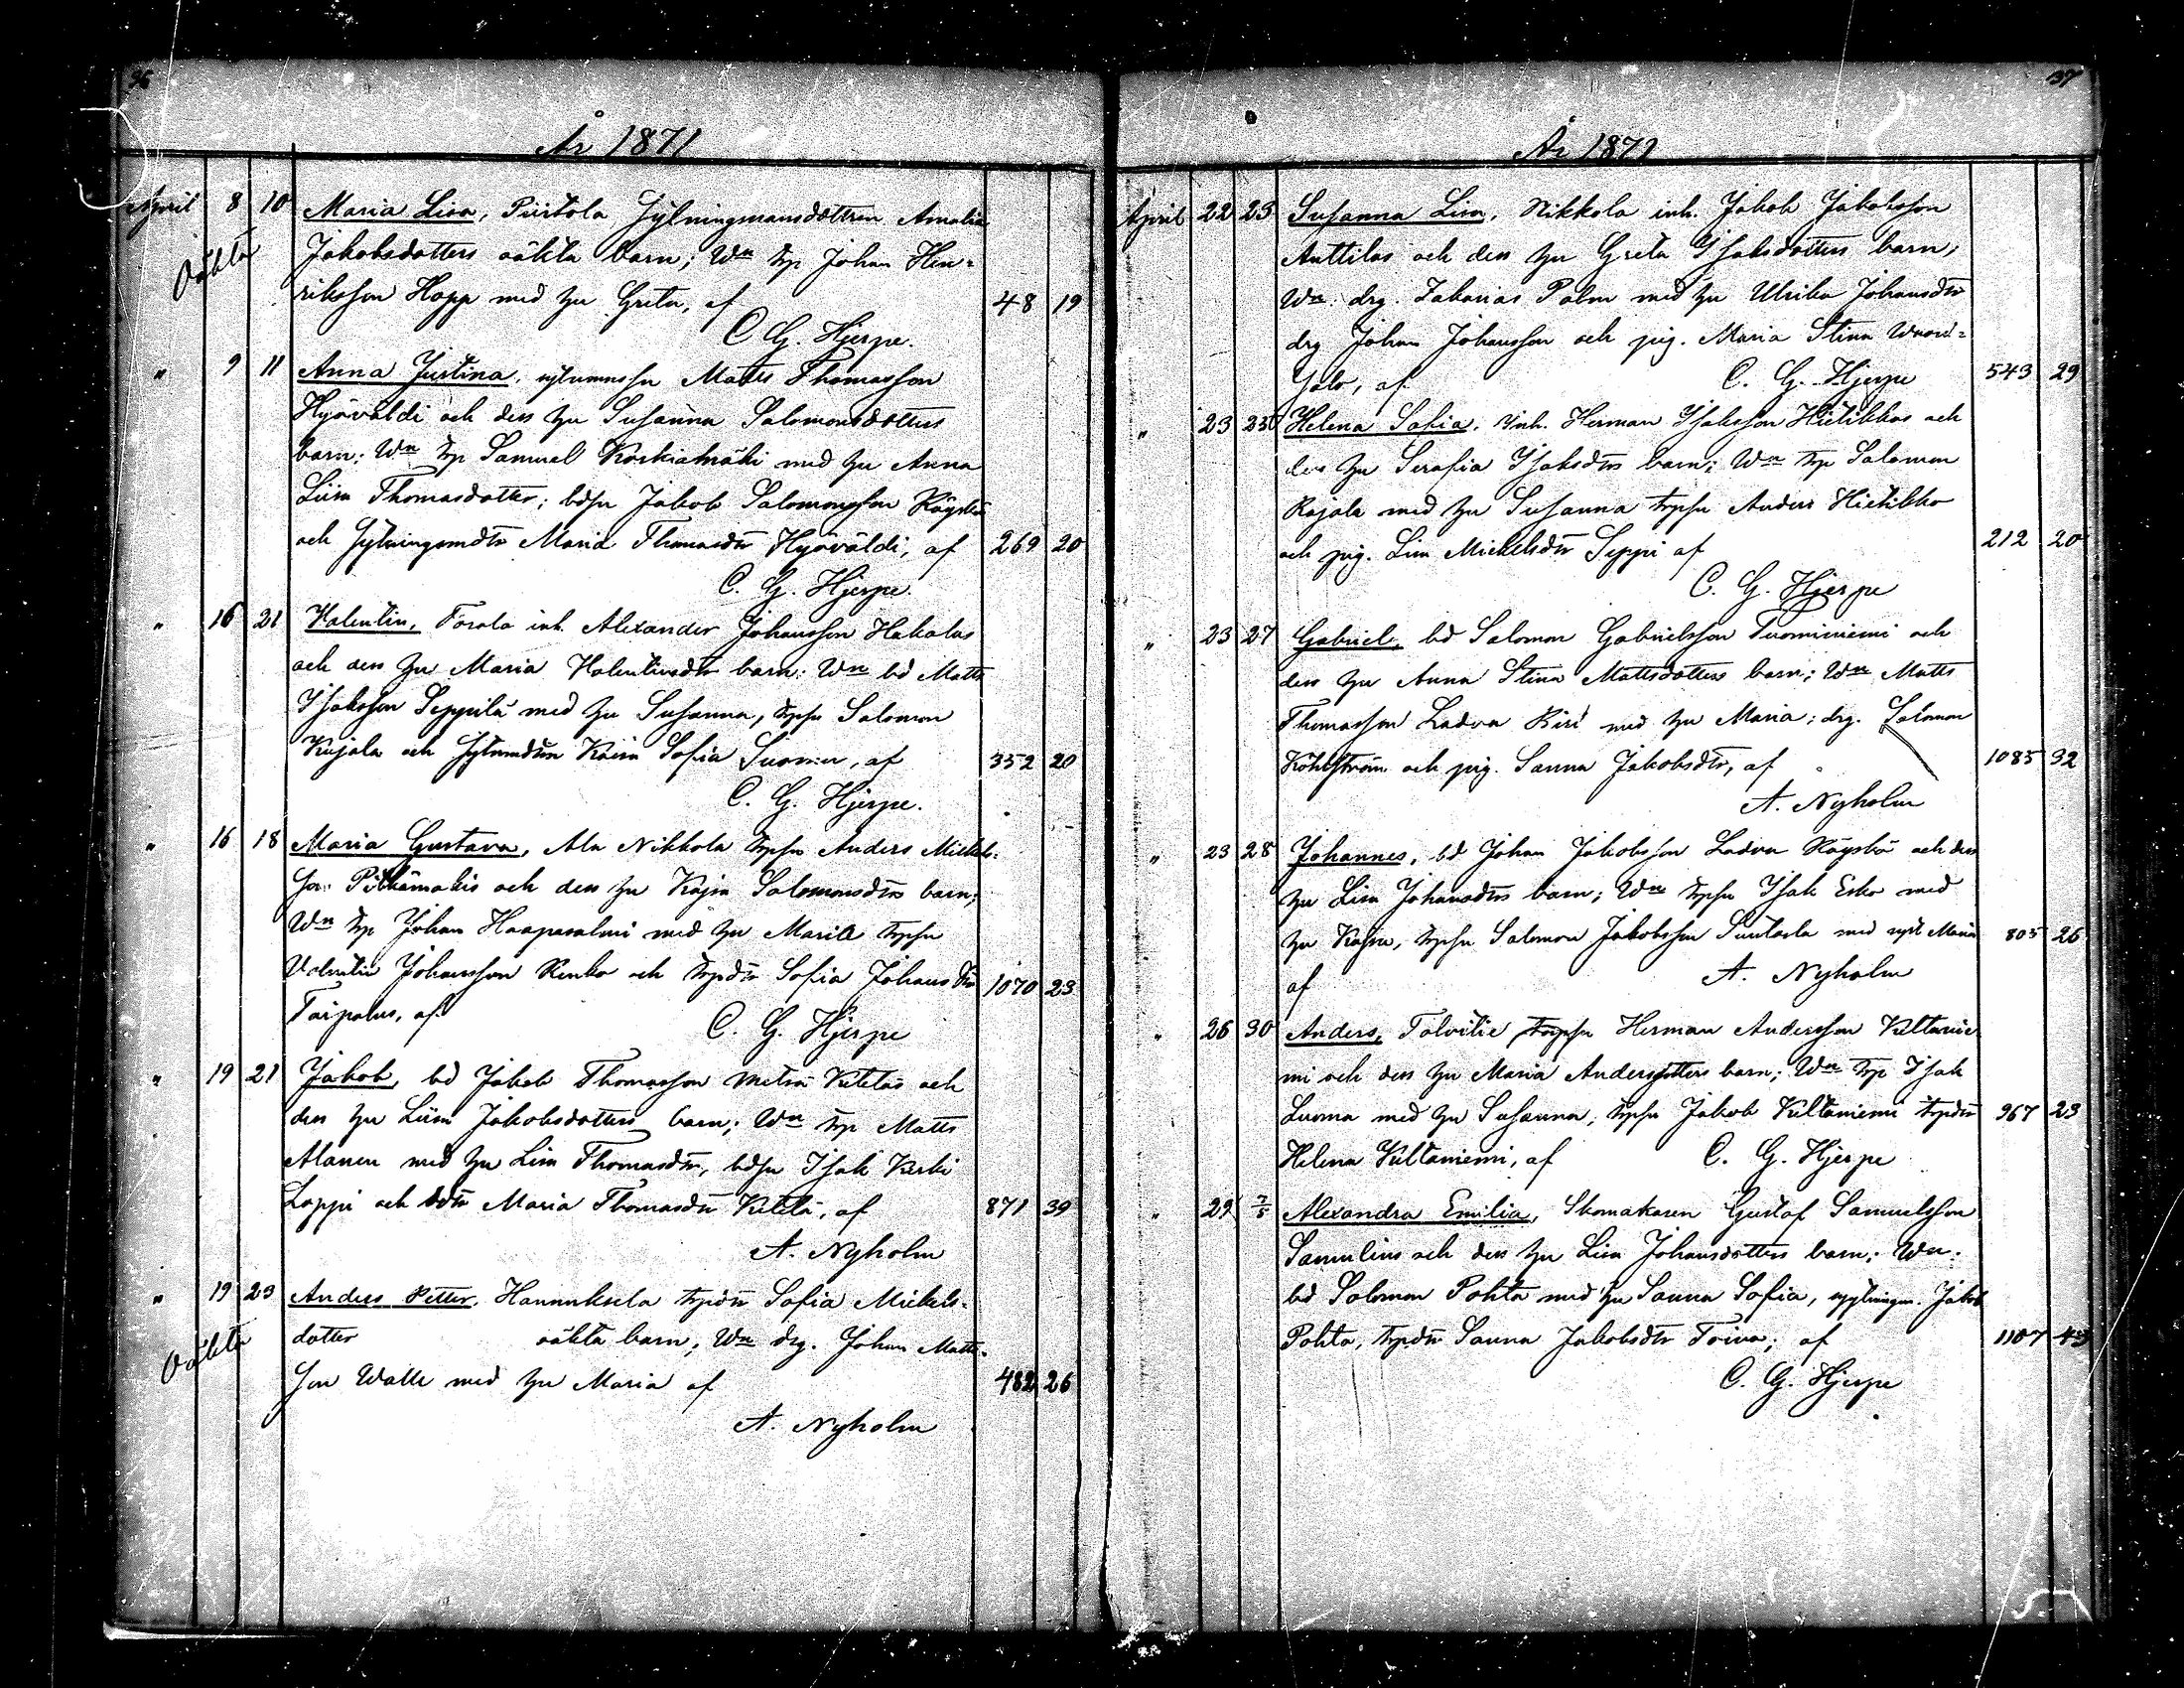 36
År 1871
April 8 10 Maria Lisa, Piirtola Sytningmansdottren Amalia
Oäkta Jakobsdotters oäkta barn; Wn trp Johan Hen-
riksson Hopp med hu Greta, af 48 19
C. G. Hjerpe.
" 9 11 Anna Justina, Matts Thomasson
Hyövälti och dess hu Susanna Salomonsdotters
barn; Wn trp Samuel Koskiahäki med hu Anna
Liisa Thomasdotter; bdsn Jakob Salomonsson Räyskö
och Sytningsmdtr Maria Thomasdtr Hyöväldi, af 269 20
C. G. Hjerpe.
" 16 21 Valentin, inh. Alexander Johansson Hakalas
och dess hu Maria Valentinsdtr barn; Wn bd Matts
Isaksson Seppilä med hu Susanna, trpsn Salomon
Kujala och Kaisa Sofia Suomu, af 352 20
C. G. Hjerpe.
" 16 18 Maria Gustava, Ala Nikkola trpsn Anders Mickels-
son och dess hu Kajsa Salomonsdtrs barn;
Wn trp Johan Haapasalmi med hu Maria trpsn
Valentin Johansson Renko och trpdtr Sofia Johansdtr 1070 23
Tarpalus, af C. G. Hjerpe
" 19 21 Jakob, bd Jakob Thomasson Metsä Ketelas och
dess hu Liisa Jakobsdotters barn; Wn trp Matts
Alanen med hu Lisa Thomasdtr, bdsn Isak Keski
Loppi och bdtr Maria Thomasdtr Ketelä, af 871 39
A. Nyholm
" 19 23 Anders Petter, Hannuksela trpdtr Sofia Mickels-
Oäkta dotter oäkta barn; Wn drg. Johan Matts-
son Walli med hu Maria af 482 26
A. Nyholm
37
År 1871
April 22 23 Susanna Lisa, Nikkola inh. Jakob Jakobsson
Anttilas och dess hu Greta Isaksdotters barn;
Wn drg. Zakarias Palm med hu Ulrika Johansdtr
drg Johan Johansson och pig. Maria Stina Wuori-
Jalo, af C. G. Hjerpe 543 29
" 23 25 Helena Sofia, Inh. Herman Isaksson Hietikkos och
dess hu Serafia Isaksdtrs barn; Wn trp Salomon
Rajala med hu Susanna trpsn Anders Hietikko
och pig. Lisa Mickelsdtr Seppi af 212 20
C. G. Hjerpe
" 23 27 Gabriel, bd Salomon Gabrielsson Tuominiemi och
dess hu Anna Stina Mattsdotters barn; Wn Matts
Thomasson Ladva Kiri med hu Maria; drg. Salomon
och pig. Sanna Jakobsdtr, af 1085 32
A. Nyholm
" 23 28 Johannes, bd Johan Jakobsson Ladva Räyskö och dess
hu Lisa Johansdtrs barn; Wn trpsn Isak Esko med
hu Kajsa, trpsn Salomon Jakobsson med syst Maria 805 26
af A. Nyholm
" 26 30 Anders, Tolvilie trpsn Herman Andersson Kultanie-
mi och dess hu Maria Andersdotters barn; Wn trp Isak
Luoma med hu Susanna; trpsn Jakob Kultaniemi trpdtr 967 23
Helena Kultaniemi, af C. G. Hjerpe
" 29 7/5 Alexandra Emilia, Skomakaren Gustaf Samuelsson
Samulins och dess hu Lisa Johansdotters barn; Wn.
bd Salomon Pohto med hu Sanna Sofia, Jakob
Pohto, trpdtr Sanna Jakobsdtr Toiva; af 1107 43
C. G. Hjerpe